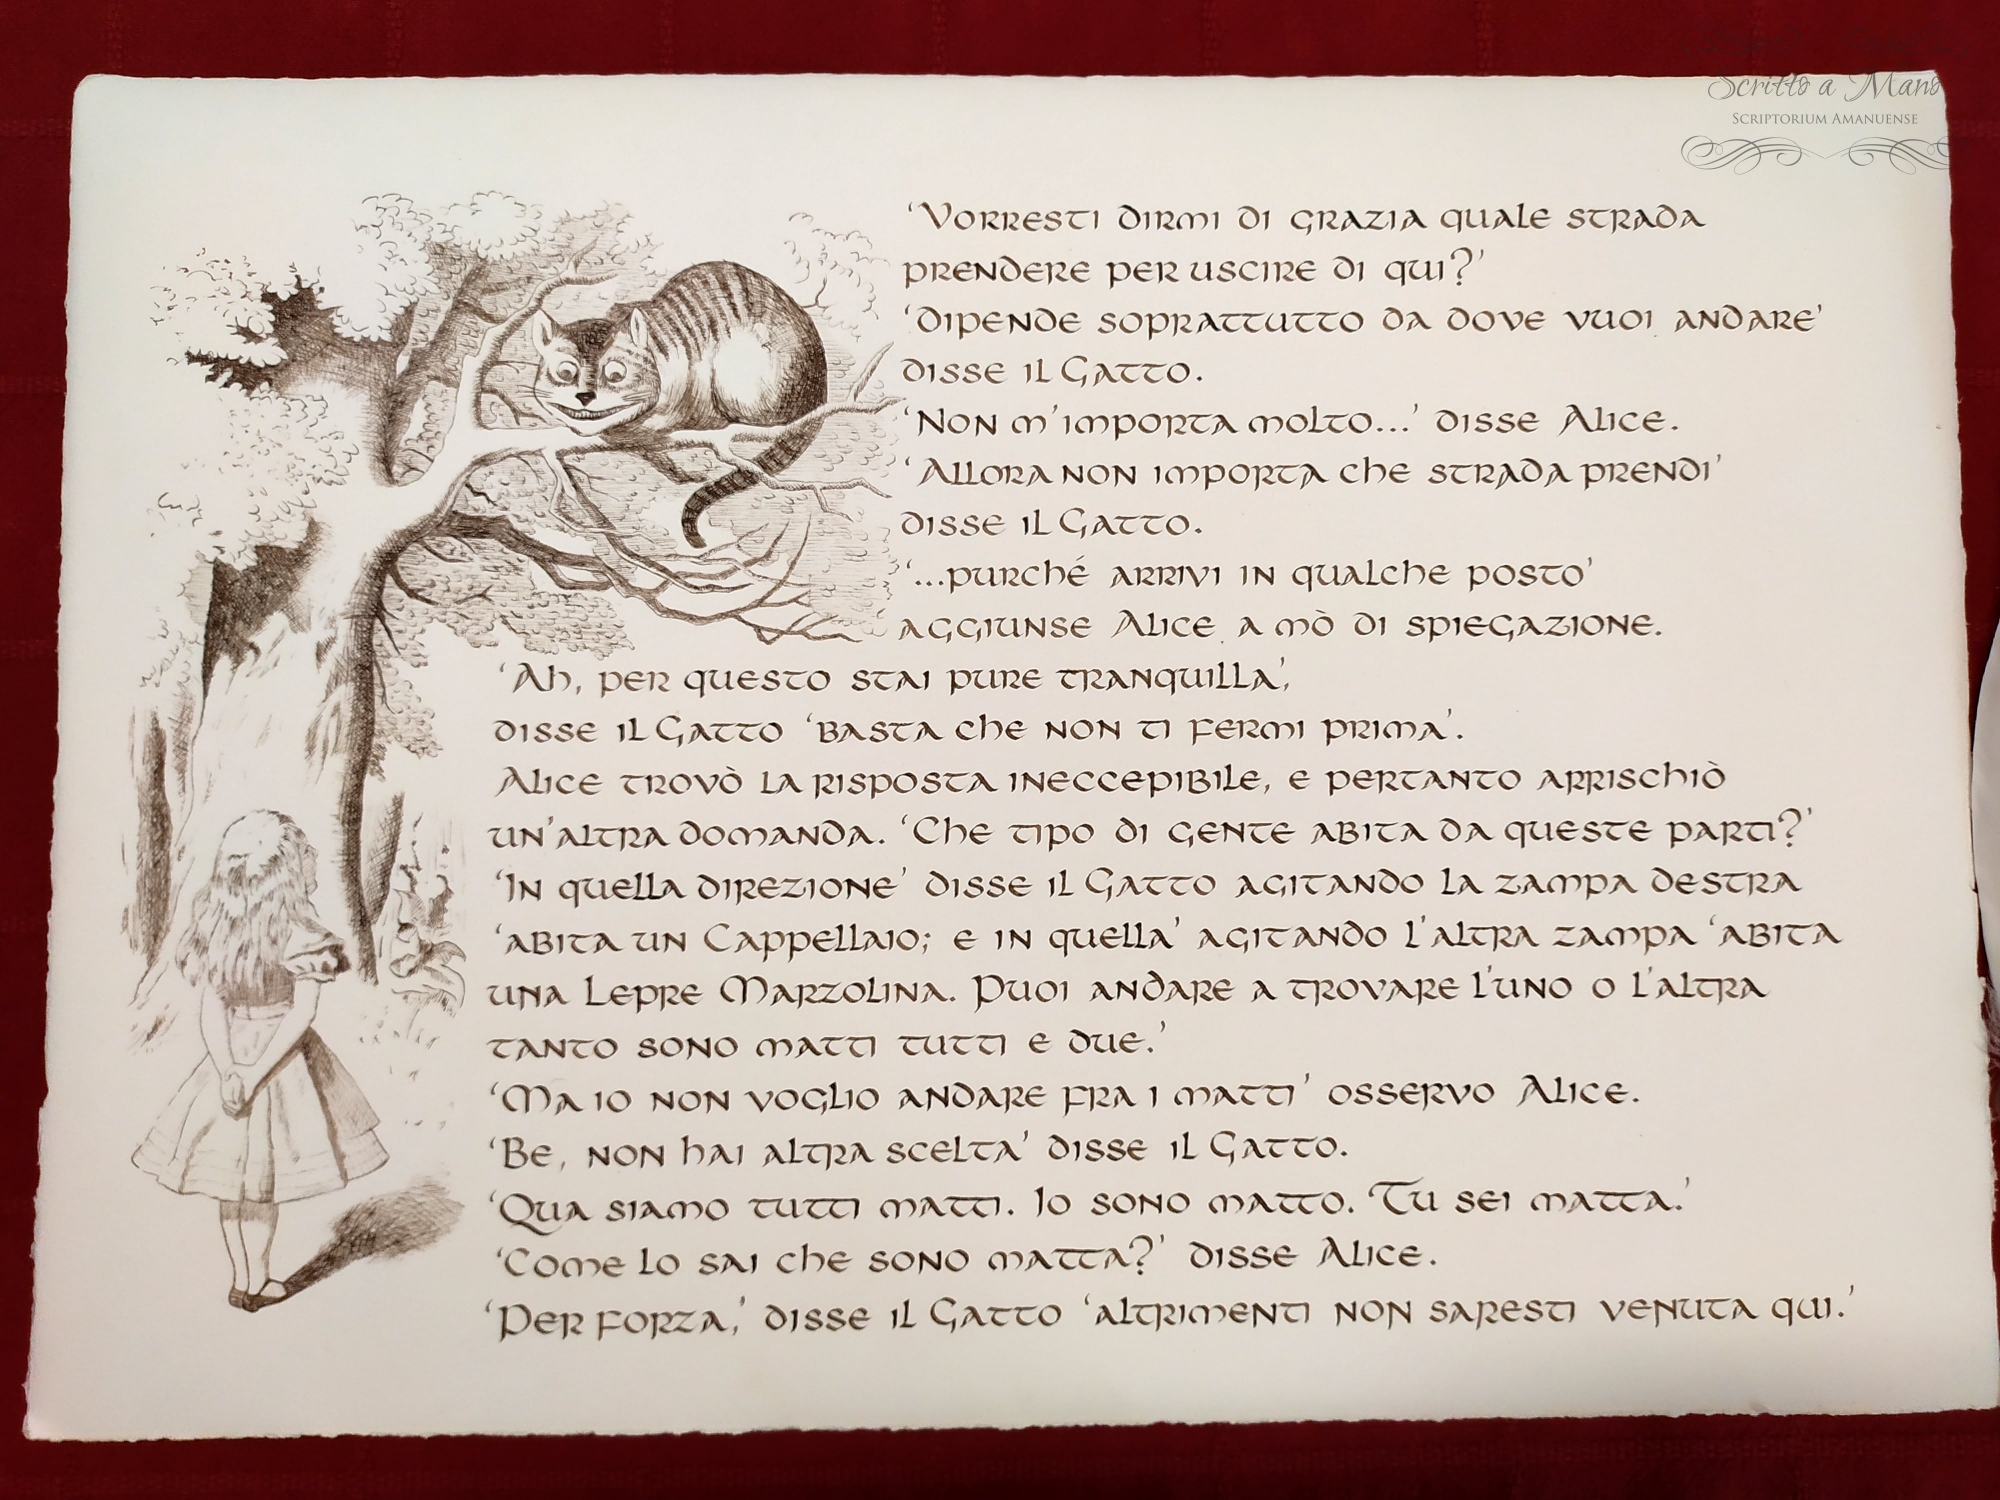 Scritto a Mano
SCRIPTORIUM AMANUENSE
'Vorresti dirmi di grazia quale strada
prendere per uscire di qui?'
'dipende soprattutto da dove vuoi andare'
disse il Gatto.
'Non m'importa molto...' disse Alice.
'Allora non importa che strada prendi'
disse il Gatto.
'...purché arrivi in qualche posto'
aggiunse Alice a mò di spiegazione.
'Ah, per questo stai pure tranquilla',
disse il Gatto 'basta che non ti fermi prima'.
Alice trovò la risposta ineccepibile, e pertanto arrischiò
un'altra domanda. 'Che tipo di gente abita da queste parti?'
'In quella direzione' disse il Gatto agitando la zampa destra
'abita un Cappellaio; e in quella' agitando l'altra zampa 'abita
una Lepre Marzolina. Puoi andare a trovare l'uno o l'altra
tanto sono matti tutti e due.'
'Ma io non voglio andare fra i matti' osservo Alice.
'Be, non hai altra scelta' disse il Gatto.
'Qua siamo tutti matti. Io sono matto. Tu sei matta.'
'Come lo sai che sono matta?' disse Alice.
'Per forza,' disse il Gatto 'altrimenti non saresti venuta qui.'